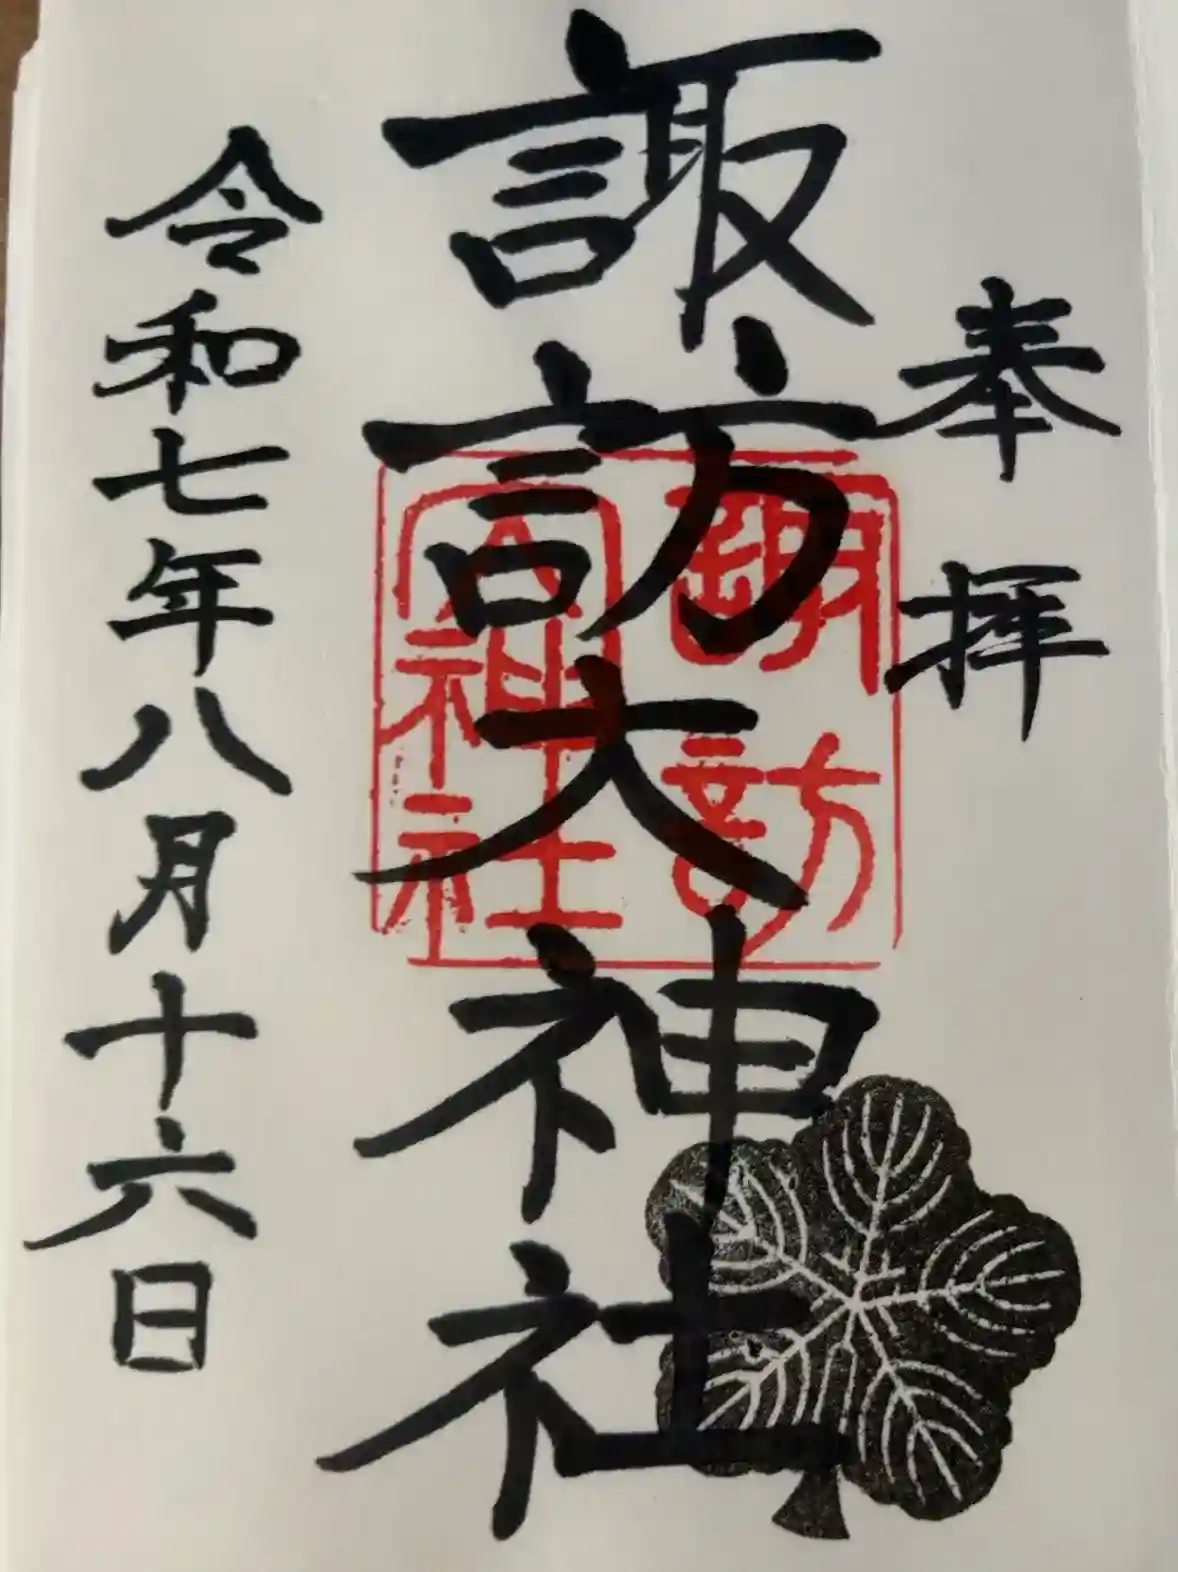 奉拝
諏訪大神社
諏訪
大神社
令和七年八月十六日